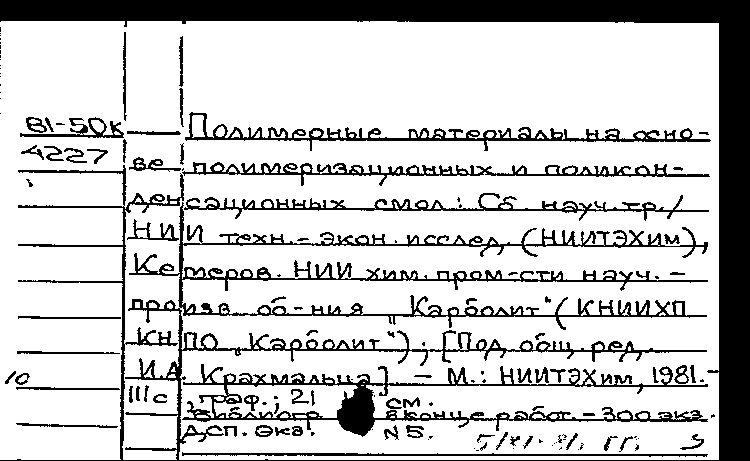 81-50к Полимерные материалы на осно-
4227 ве полимеризационных и поликон-
денсационных смол: Сб. науч. тр./
НИИ техн.-экон. исслед. (НИИТЭХим),
Кемеров. НИИ хим. пром-сти науч.-
произв. об-ния „Карболит“ (КНИИХП
КНПО „Карболит“); [Под общ. ред.
И.А. Крахмальца]. — М.: НИИТЭХим, 1981.-
10
111 с., граф.; 21 см.
Библиогр. в конце работ. — 300 экз.
ДСП. Экз. N 5.
5/XI-81. гг. S